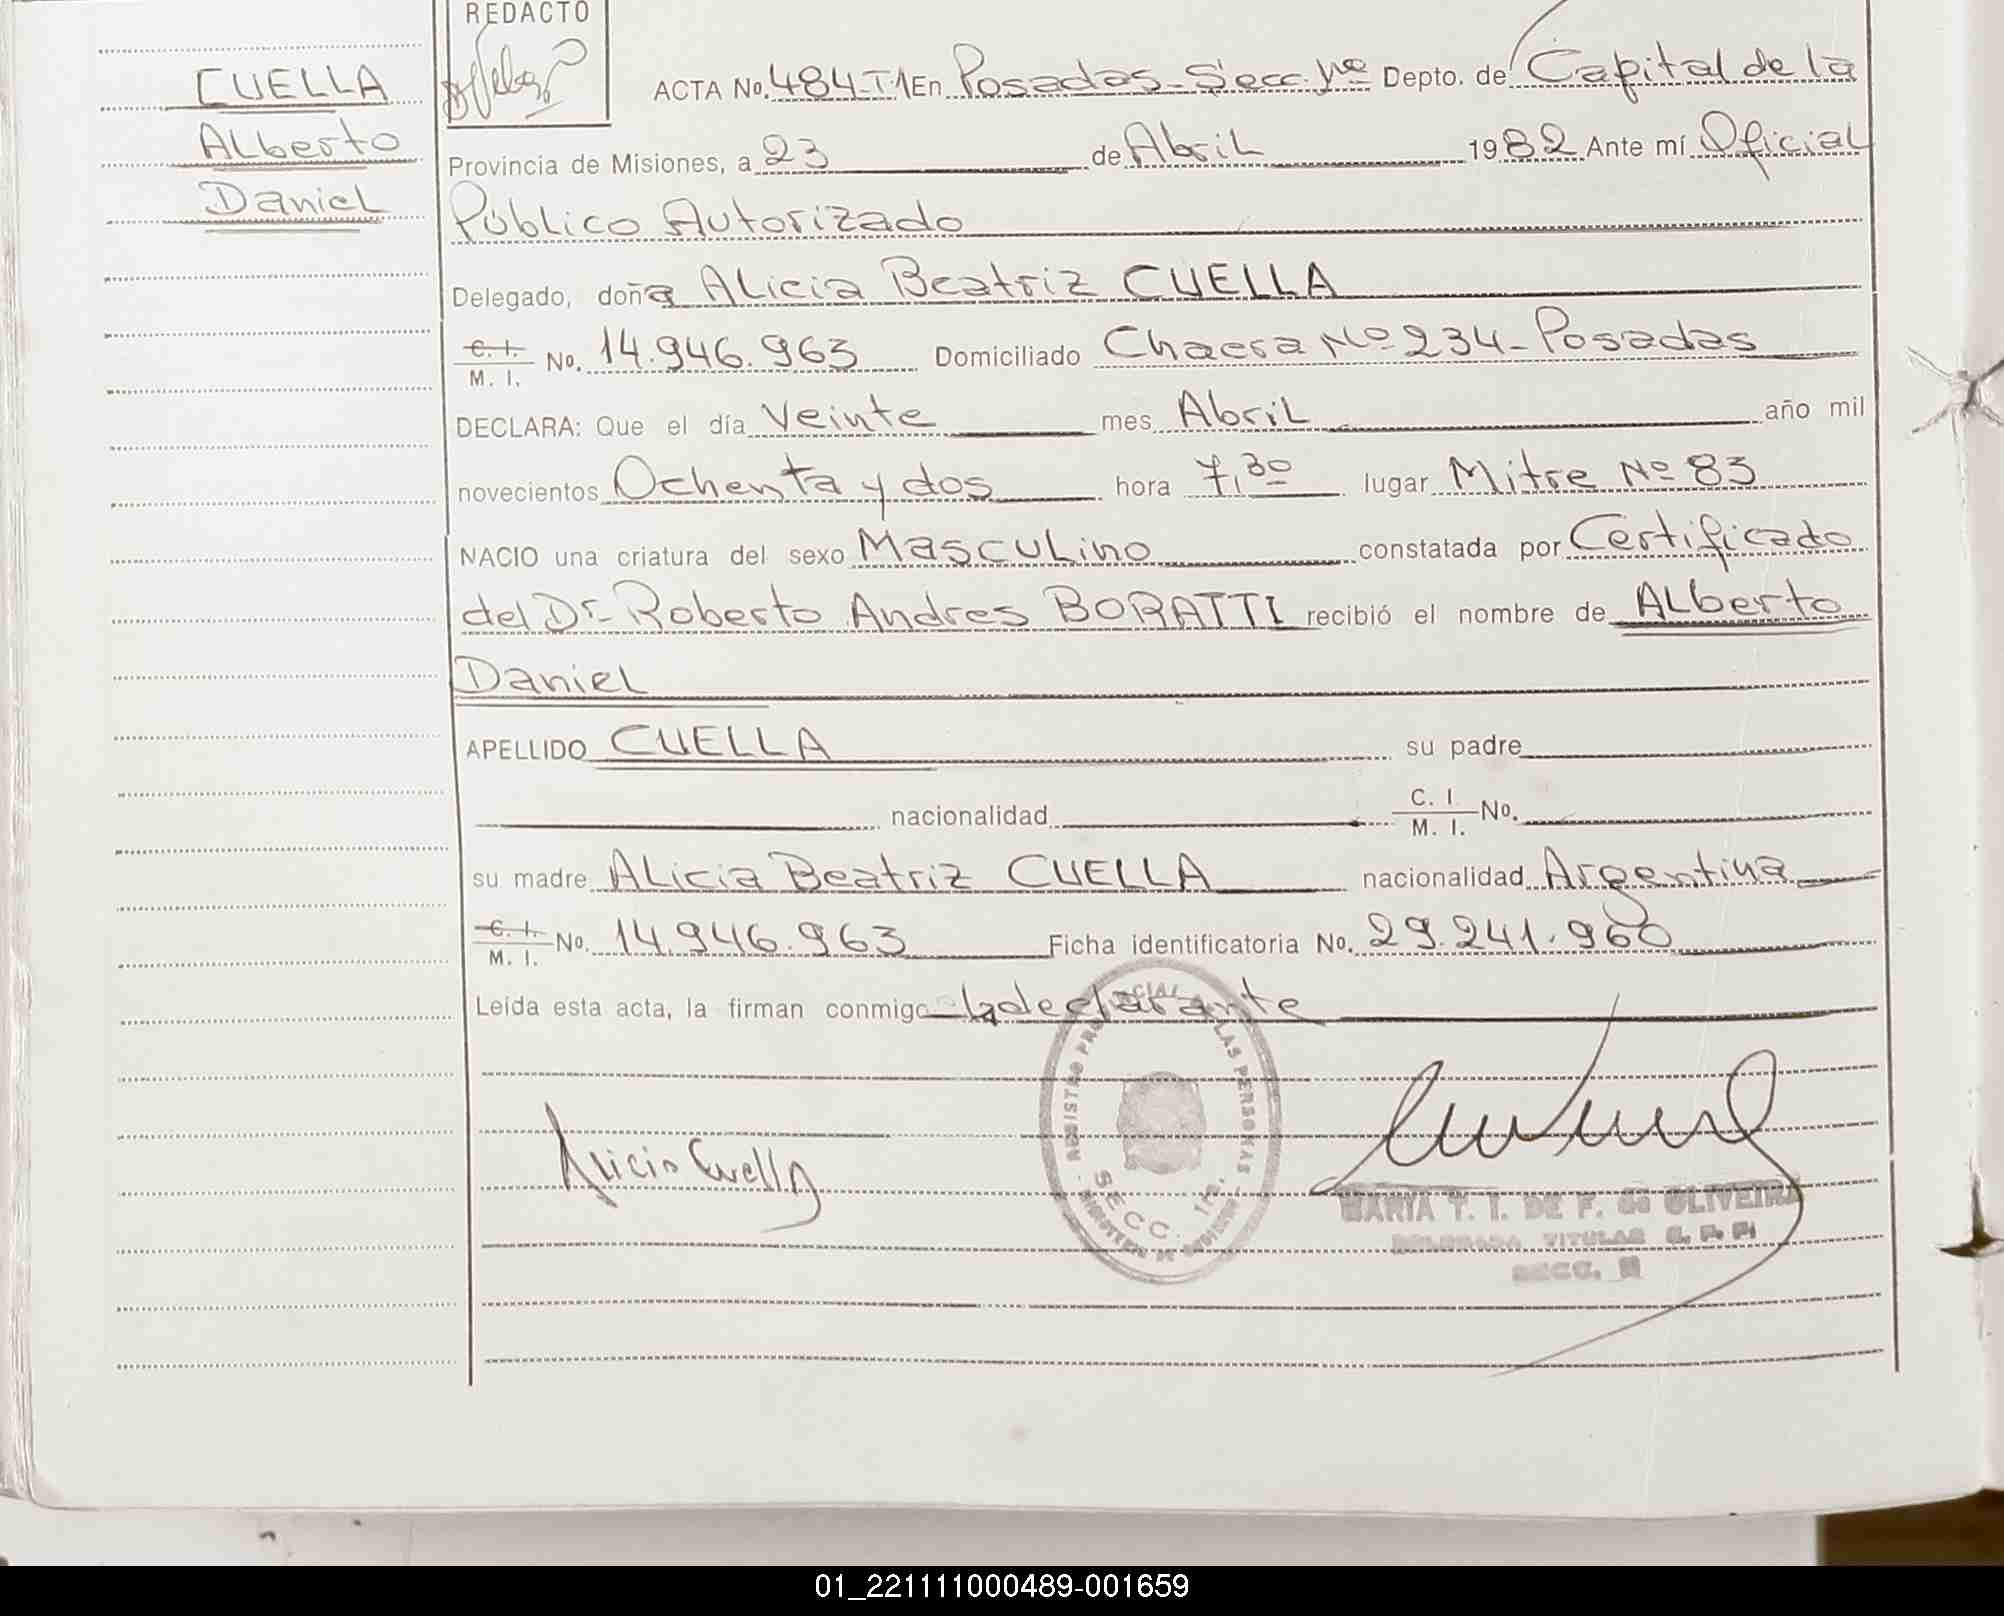 REDACTO
CUELLA
Alberto
Daniel
ACTA No. 484-T1 En Posadas - Secc. 1ra Depto. de Capital de la
Provincia de Misiones, a 23 de Abril 1982 Ante mí Oficial
Público Autorizado
Delegado, doña Alicia Beatriz CUELLA
C. I. / M. I. No. 14.946.963 Domiciliado Chacra Nº 234 - Posadas
DECLARA: Que el día Veinte mes Abril año mil
novecientos Ochenta y dos hora 7,30 lugar Mitre Nº 83
NACIO una criatura del sexo Masculino constatada por Certificado
del Dr. Roberto Andres BORATTI recibió el nombre de Alberto
Daniel
APELLIDO CUELLA su padre
nacionalidad C. I. / M. I. No.
su madre Alicia Beatriz CUELLA nacionalidad Argentina
C. I. / M. I. No. 14.946.963 Ficha identificatoria No. 29.241.960
Leída esta acta, la firman conmigo la declarante
Alicia Cuella
SECC. 1ra.
MARIA T. I. DE F. de OLIVEIRA
DELEGADA TITULAR
SECC.
01_221111000489-001659